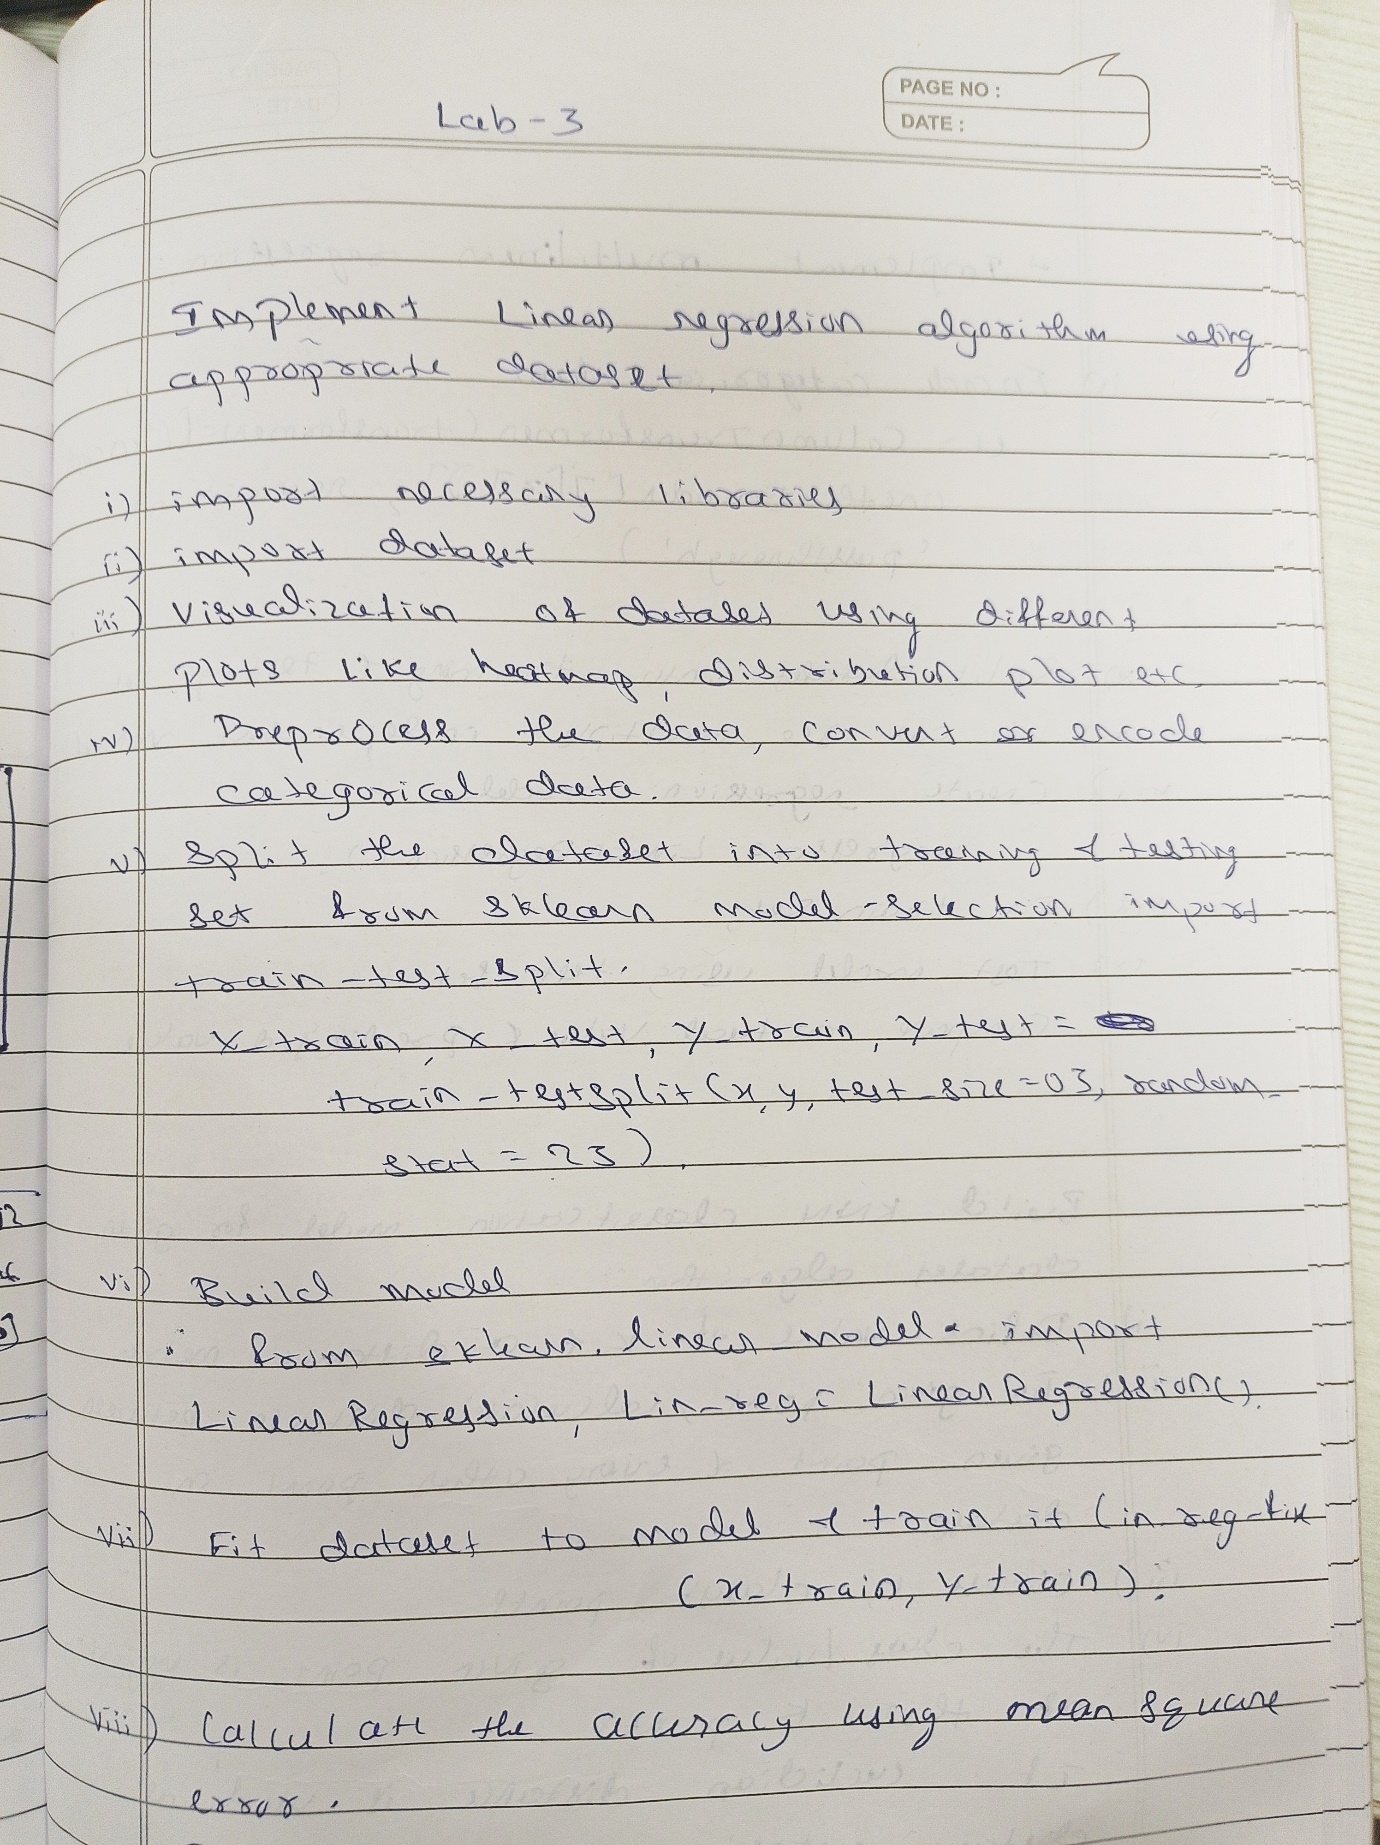 PAGE NO :
DATE :
Lab - 3
Implement Linear regression algorithm using
appropriate dataset.
i) import necessary libraries
ii) import dataset
iii) Visualization of datases using different
plots like heatmap, distribution plot etc.
iv) Preprocess the data, convert or encode
categorical data.
v) Split the dataset into training & testing
set from sklearn model-selection import
train-test-split.
X_train, X_test, Y_train, Y_test =
train-testsplit(x, y, test_size=03, random_
stat = 23).
vi) Build model
from sklearn. linear model import
Linear Regression, Lin-reg = Linear Regression().
vii) Fit dataset to model & train it lin reg-fit
(x_train, y_train).
viii) Calculate the accuracy using mean square
error.